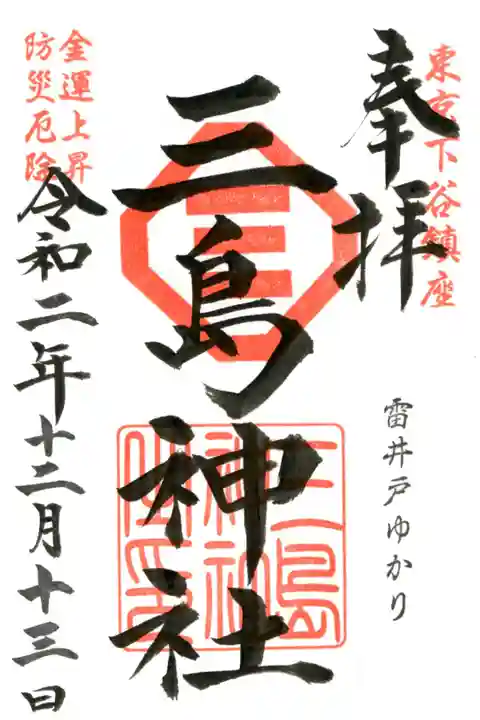 東京下谷鎮座
奉拝
雷井戸ゆかり
三島神社
三島
神社
金運上昇
防災厄除
令和二年十二月十三日